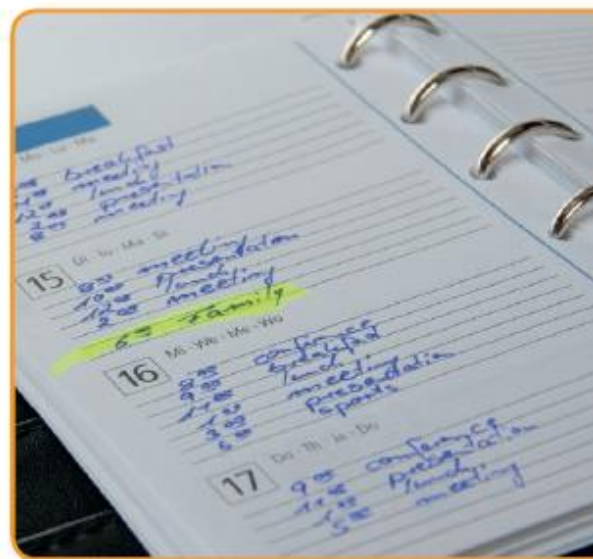 Mo · Lu · Ma
breakfast
meeting
12⁰⁰ lunch
2⁰⁰ presentation
8⁰⁰ meeting
15 Di · Tu · Ma · Di
8⁰⁰ meeting
10⁰⁰ presentation
12⁰⁰ lunch
2⁰⁰ meeting
6⁰⁰ Family
16 Mi · We · Me · Wo
8⁰⁰ conference
9⁰⁰ breakfast
11⁰⁰ lunch
1⁰⁰ meeting
3⁰⁰ presentation
6⁰⁰ sports
17 Do · Th · Je · Do
9⁰⁰ conference
11⁰⁰ presentation
1⁰⁰ lunch
5⁰⁰ meeting